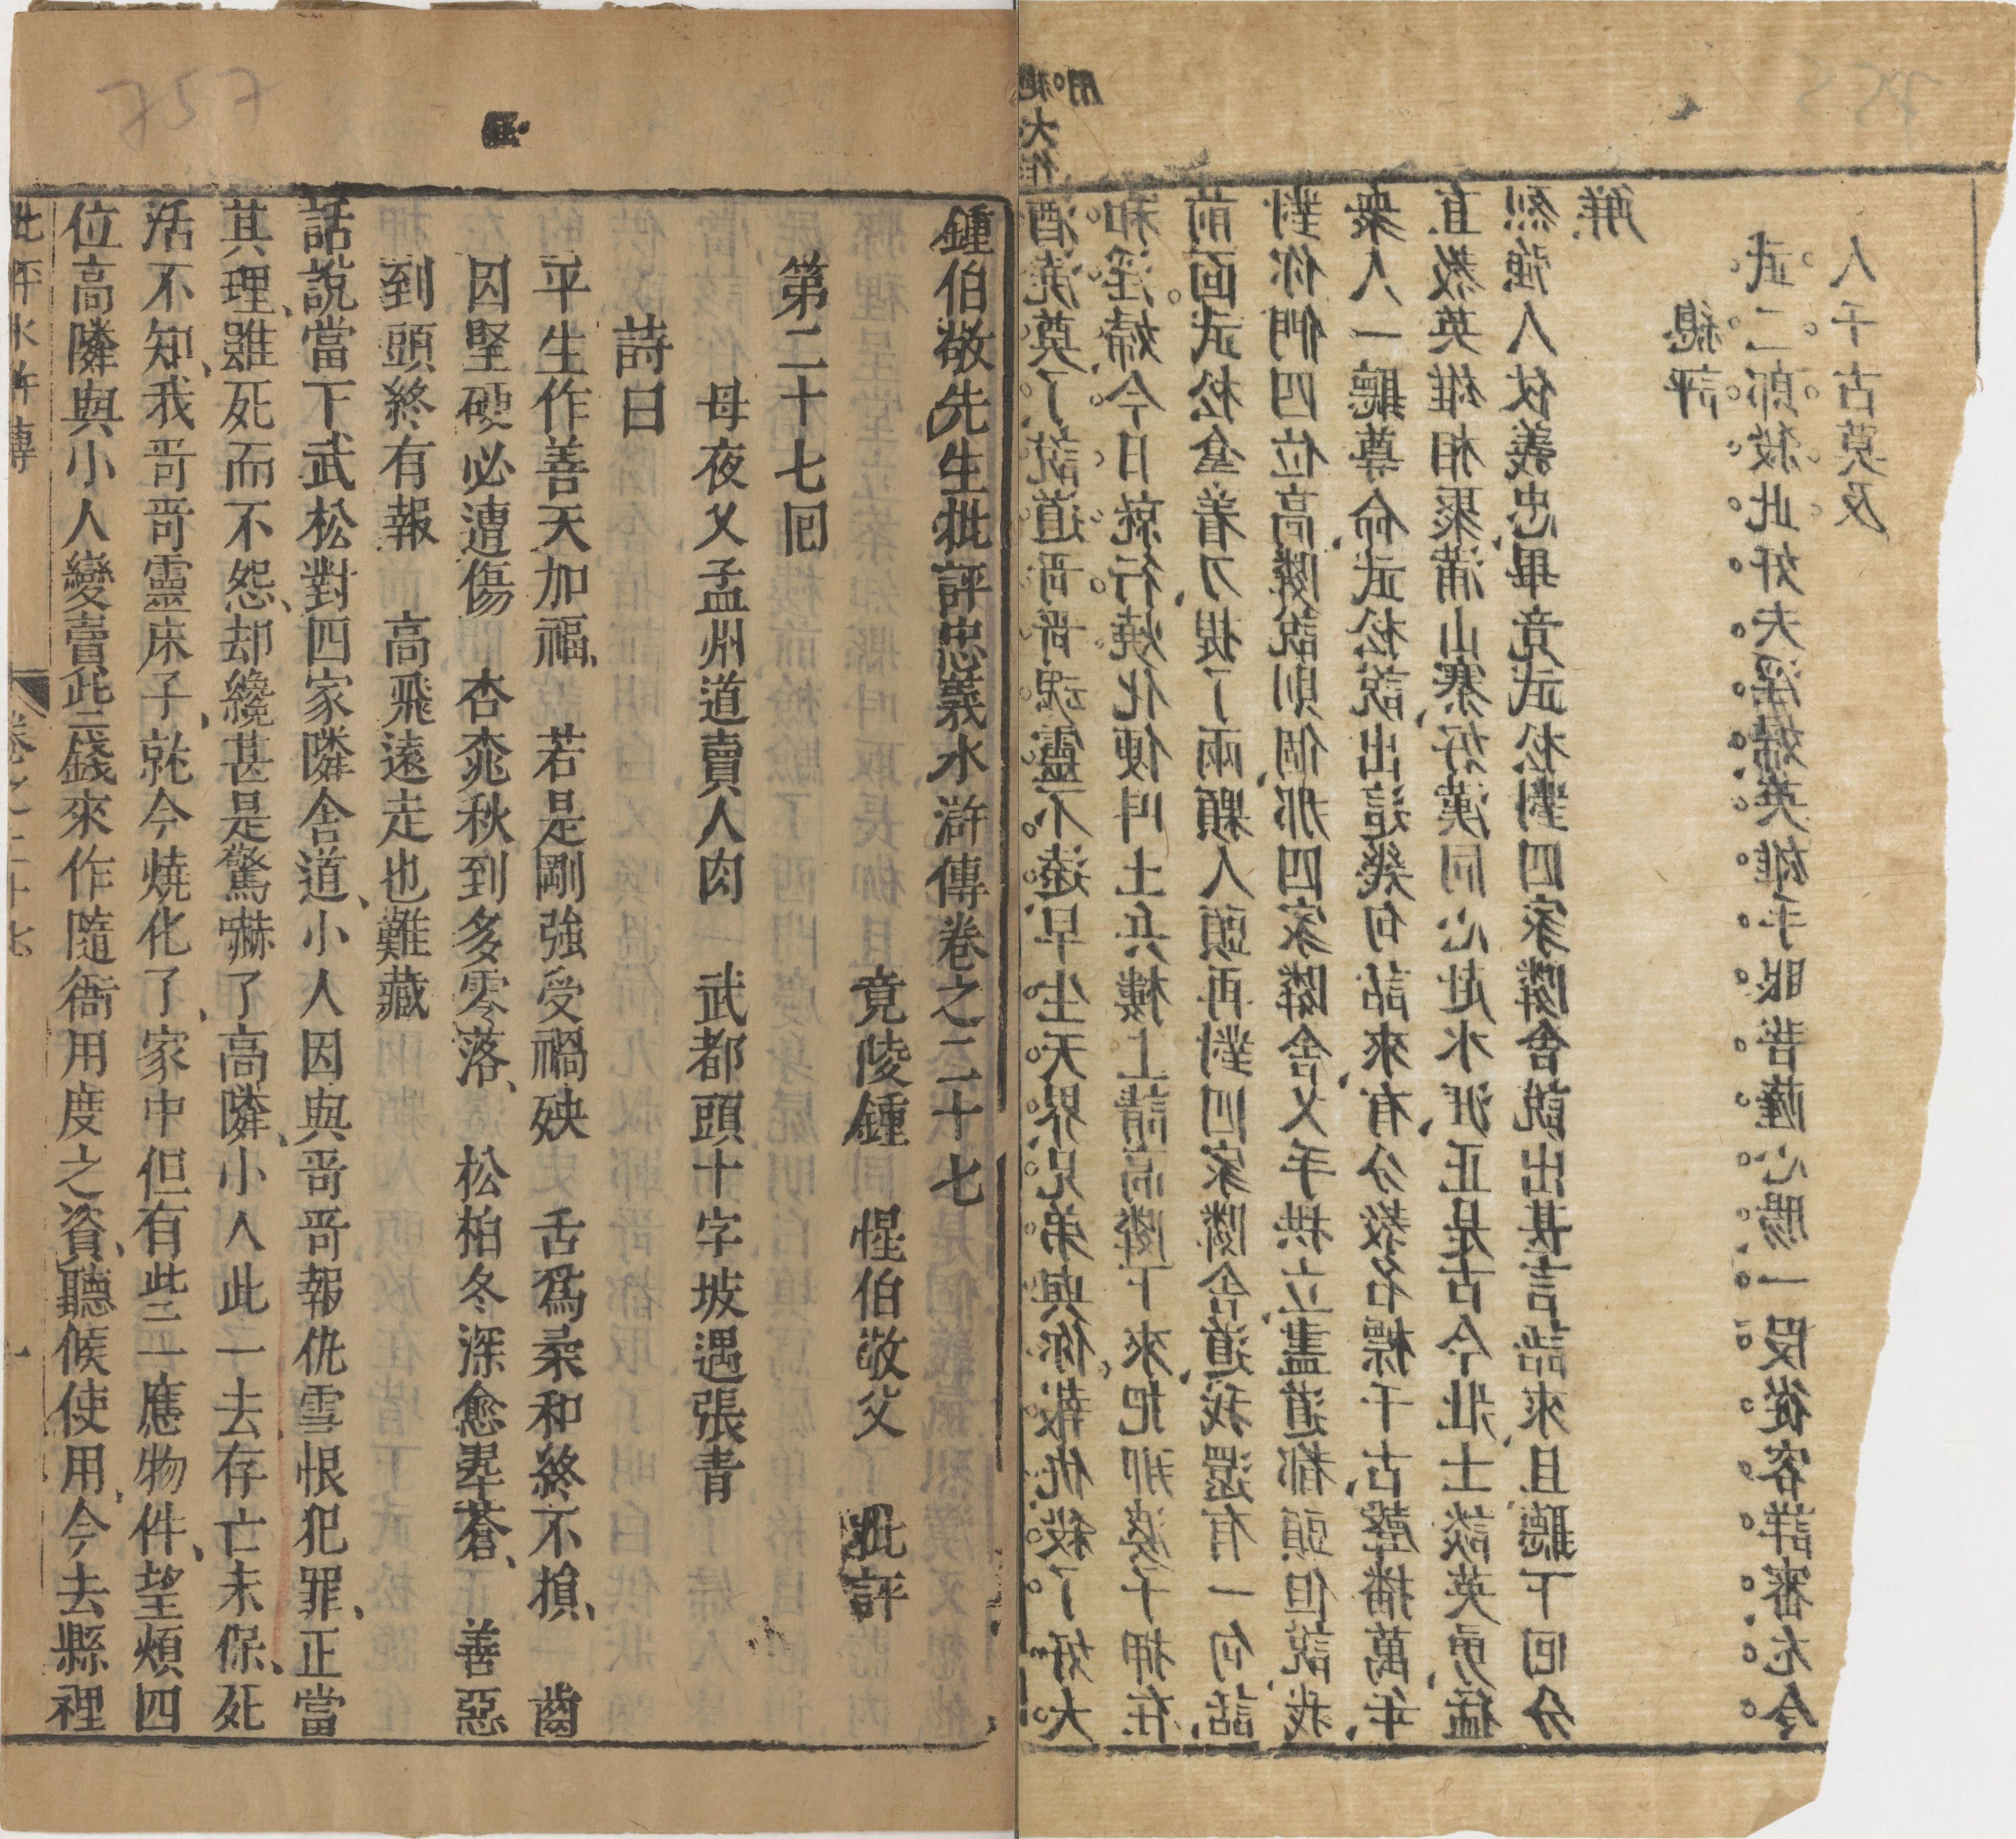 酒澆奠了說道哥哥魂靈不遠早生天界兄弟與你報仇殺了奸夫
和淫婦今日就行燒化便叫土兵樓上請高隣下來把那婆子押在
前面武松拿着刀提了兩顆人頭再對四家隣舍道我還有一句話
對你們四位高隣說則個那四家隣舍叉手拱立盡道都頭但說我
衆人一聽尊命武松說出這幾句話來有分教名標千古聲播萬年
直教英雄相聚滿山寨好漢同心赴水洼正是古今壯士談英勇猛
烈強人仗義忠畢竟武松對四家隣舍說出甚言語來且聽下回分
解
總評
武二郎殺此奸夫淫婦英雄手眼菩薩心腸一段從容詳審尤今
人千古莫及
鍾伯敬先生批評忠義水滸傳卷之二十七
竟陵鍾 惺伯敬父 批評
第二十七囘
母夜叉孟州道賣人肉 武都頭十字坡遇張青
詩曰
平生作善天加福、 若是剛強受禍殃 舌爲柔和終不損、 齒
因堅硬必遭傷 杏桃秋到多零落、 松柏冬深愈翠蒼、 善惡
到頭終有報 高飛遠走也難藏
話說當下武松對四家隣舍道、小人因與哥哥報仇雪恨犯罪、正當
其理、雖死而不怨、却纔甚是驚嚇了高隣、小人此一去存亡未保、死
活不知、我哥哥靈床子、就今燒化了、家中但有些二應物件、望煩四
位高隣與小人變賣些錢來作隨衙用度之資、聽候使用、今去縣裡
批評水滸傳 卷之二十七 一
757